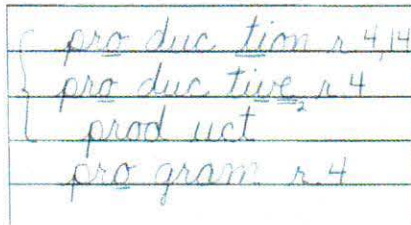 pro duc tion r 4,14
pro duc tive 2 r 4
prod uct
pro gram r 4